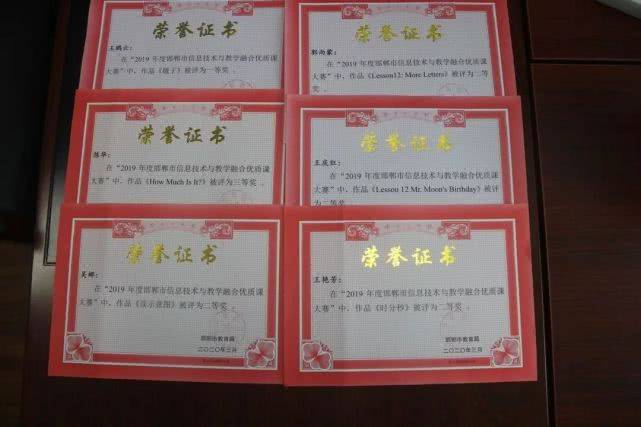 荣誉证书
王鹏云：
在“2019 年度邯郸市信息技术与教学融合优质课
大赛”中，作品《毽子》被评为一等奖 。
荣誉证书
郭尚蒙：
在“2019 年度邯郸市信息技术与教学融合优质课
大赛”中，作品《Lesson12: More Letters》被评为二等
奖 。
荣誉证书
陈华：
在“2019 年度邯郸市信息技术与教学融合优质课
大赛”中，作品《How Much Is It?》被评为三等奖 。
荣誉证书
在“2019 年度邯郸市信息技术与教学融合优质课
大赛”中，作品《Lesson 12 Mr. Moon's Birthday》被评
为二等奖 。
荣誉证书
吴娜：
在“2019 年度邯郸市信息技术与教学融合优质课
大赛”中，作品 被评为二等奖 。
邯郸市教育局
二〇二〇年三月
荣誉证书
王艳芳：
在“2019 年度邯郸市信息技术与教学融合优质课
大赛”中，作品《时分秒》被评为二等奖 。
邯郸市教育局
二〇二〇年三月